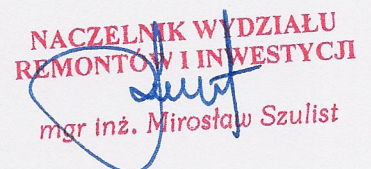 NACZELNIK WYDZIAŁU
REMONTÓW I INWESTYCJI
mgr inż. Mirosław Szulist